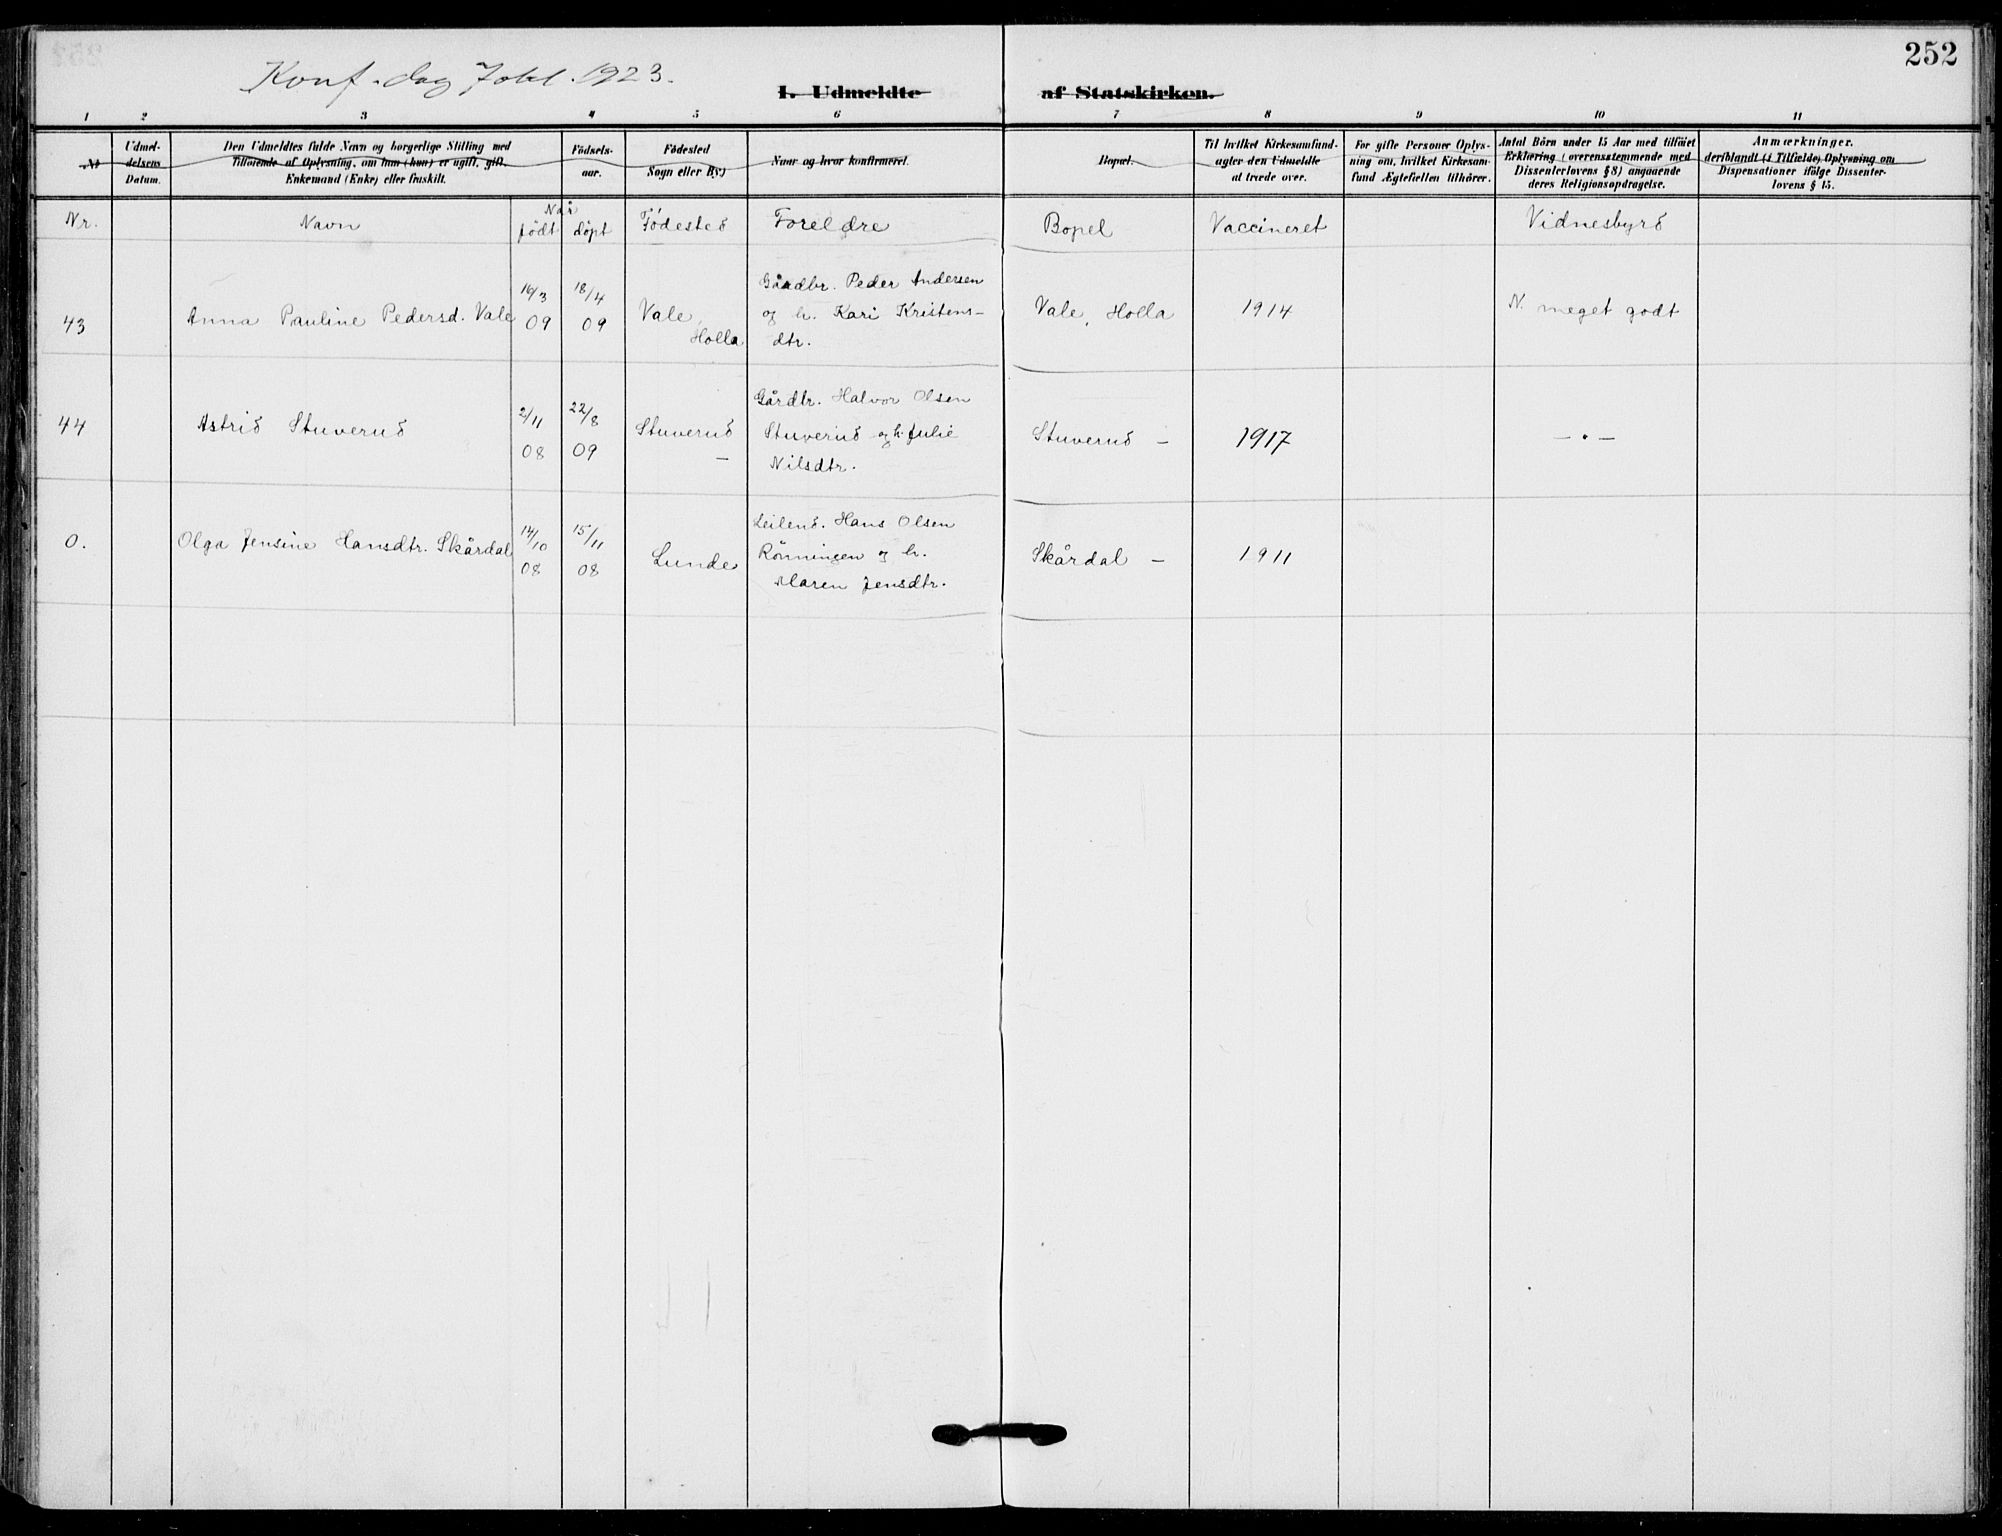 252
Konf. dag 7 okt. 1923.
I. Udmeldte af Statskirken.
1 2 3 4 5 6 7 8 9 10 11
№
Udmel-
delsens
Datum.
Den Udmeldtes fulde Navn og borgerlige Stilling med
Tilføiende af Oplysning, om han (hun) er ugift, gift,
Enkemand (Enke) eller fraskilt.
Födsels-
aar.
Födested
Sogn eller By.)
Naar og hvor konfirmeret.
Bopæl.
Til hvilket Kirkesamfund
agter den Udmeldte
at træde over.
For gifte Personer Oplys-
ning om, hvilket Kirkesam-
fund Ægtefællen tilhörer.
Antal Börn under 15 Aar med tilföiet
Erklæring (overensstemmende med
Dissenterlovens § 8) angaaende
deres Religionsopdragelse.
Anmærkninger.
deriblandt (i Tilfælde) Oplysning om
Dispensationer ifölge Dissenter-
lovens § 15.
Nr. Navn Når født döpt Födested Foreldre Bopel Vaccineret Vidnesbyrd
43
Anna Pauline Pedersd. Vale
16/3
09
18/4
09
Vale,
Holla
Gårdbr. Peder Andersen
og h. Kari Kristens-
dtr.
Vale, Holla
1914
N. meget godt
44
Astrid Stuverud
2/11
08
22/8
09
Stuverud
—
Gårdbr. Halvor Olsen
Stuverud og h. Julie
Nilsdtr.
Stuverud —
1917
— • —
0.
Olga Jensine Hansdtr. Skårdal
14/10
08
15/11
08
Lunde
Leilend. Hans Olsen
Rönningen og h.
Maren Jensdtr.
Skårdal —
1911